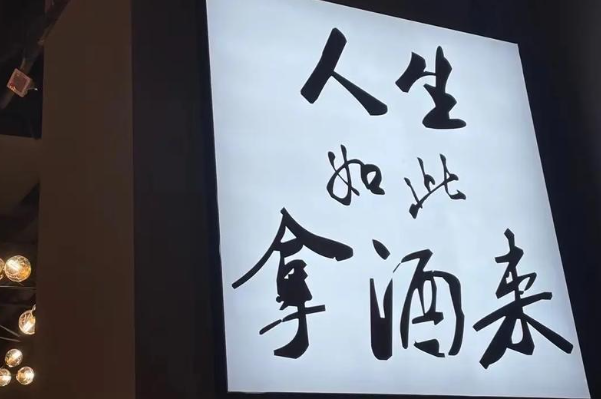 人生
如此
拿酒来